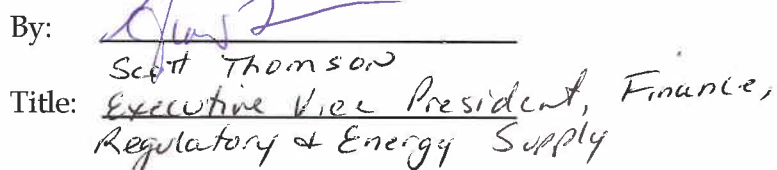 By:
Scott Thomson
Title: Executive Vice President, Finance,
Regulatory & Energy Supply